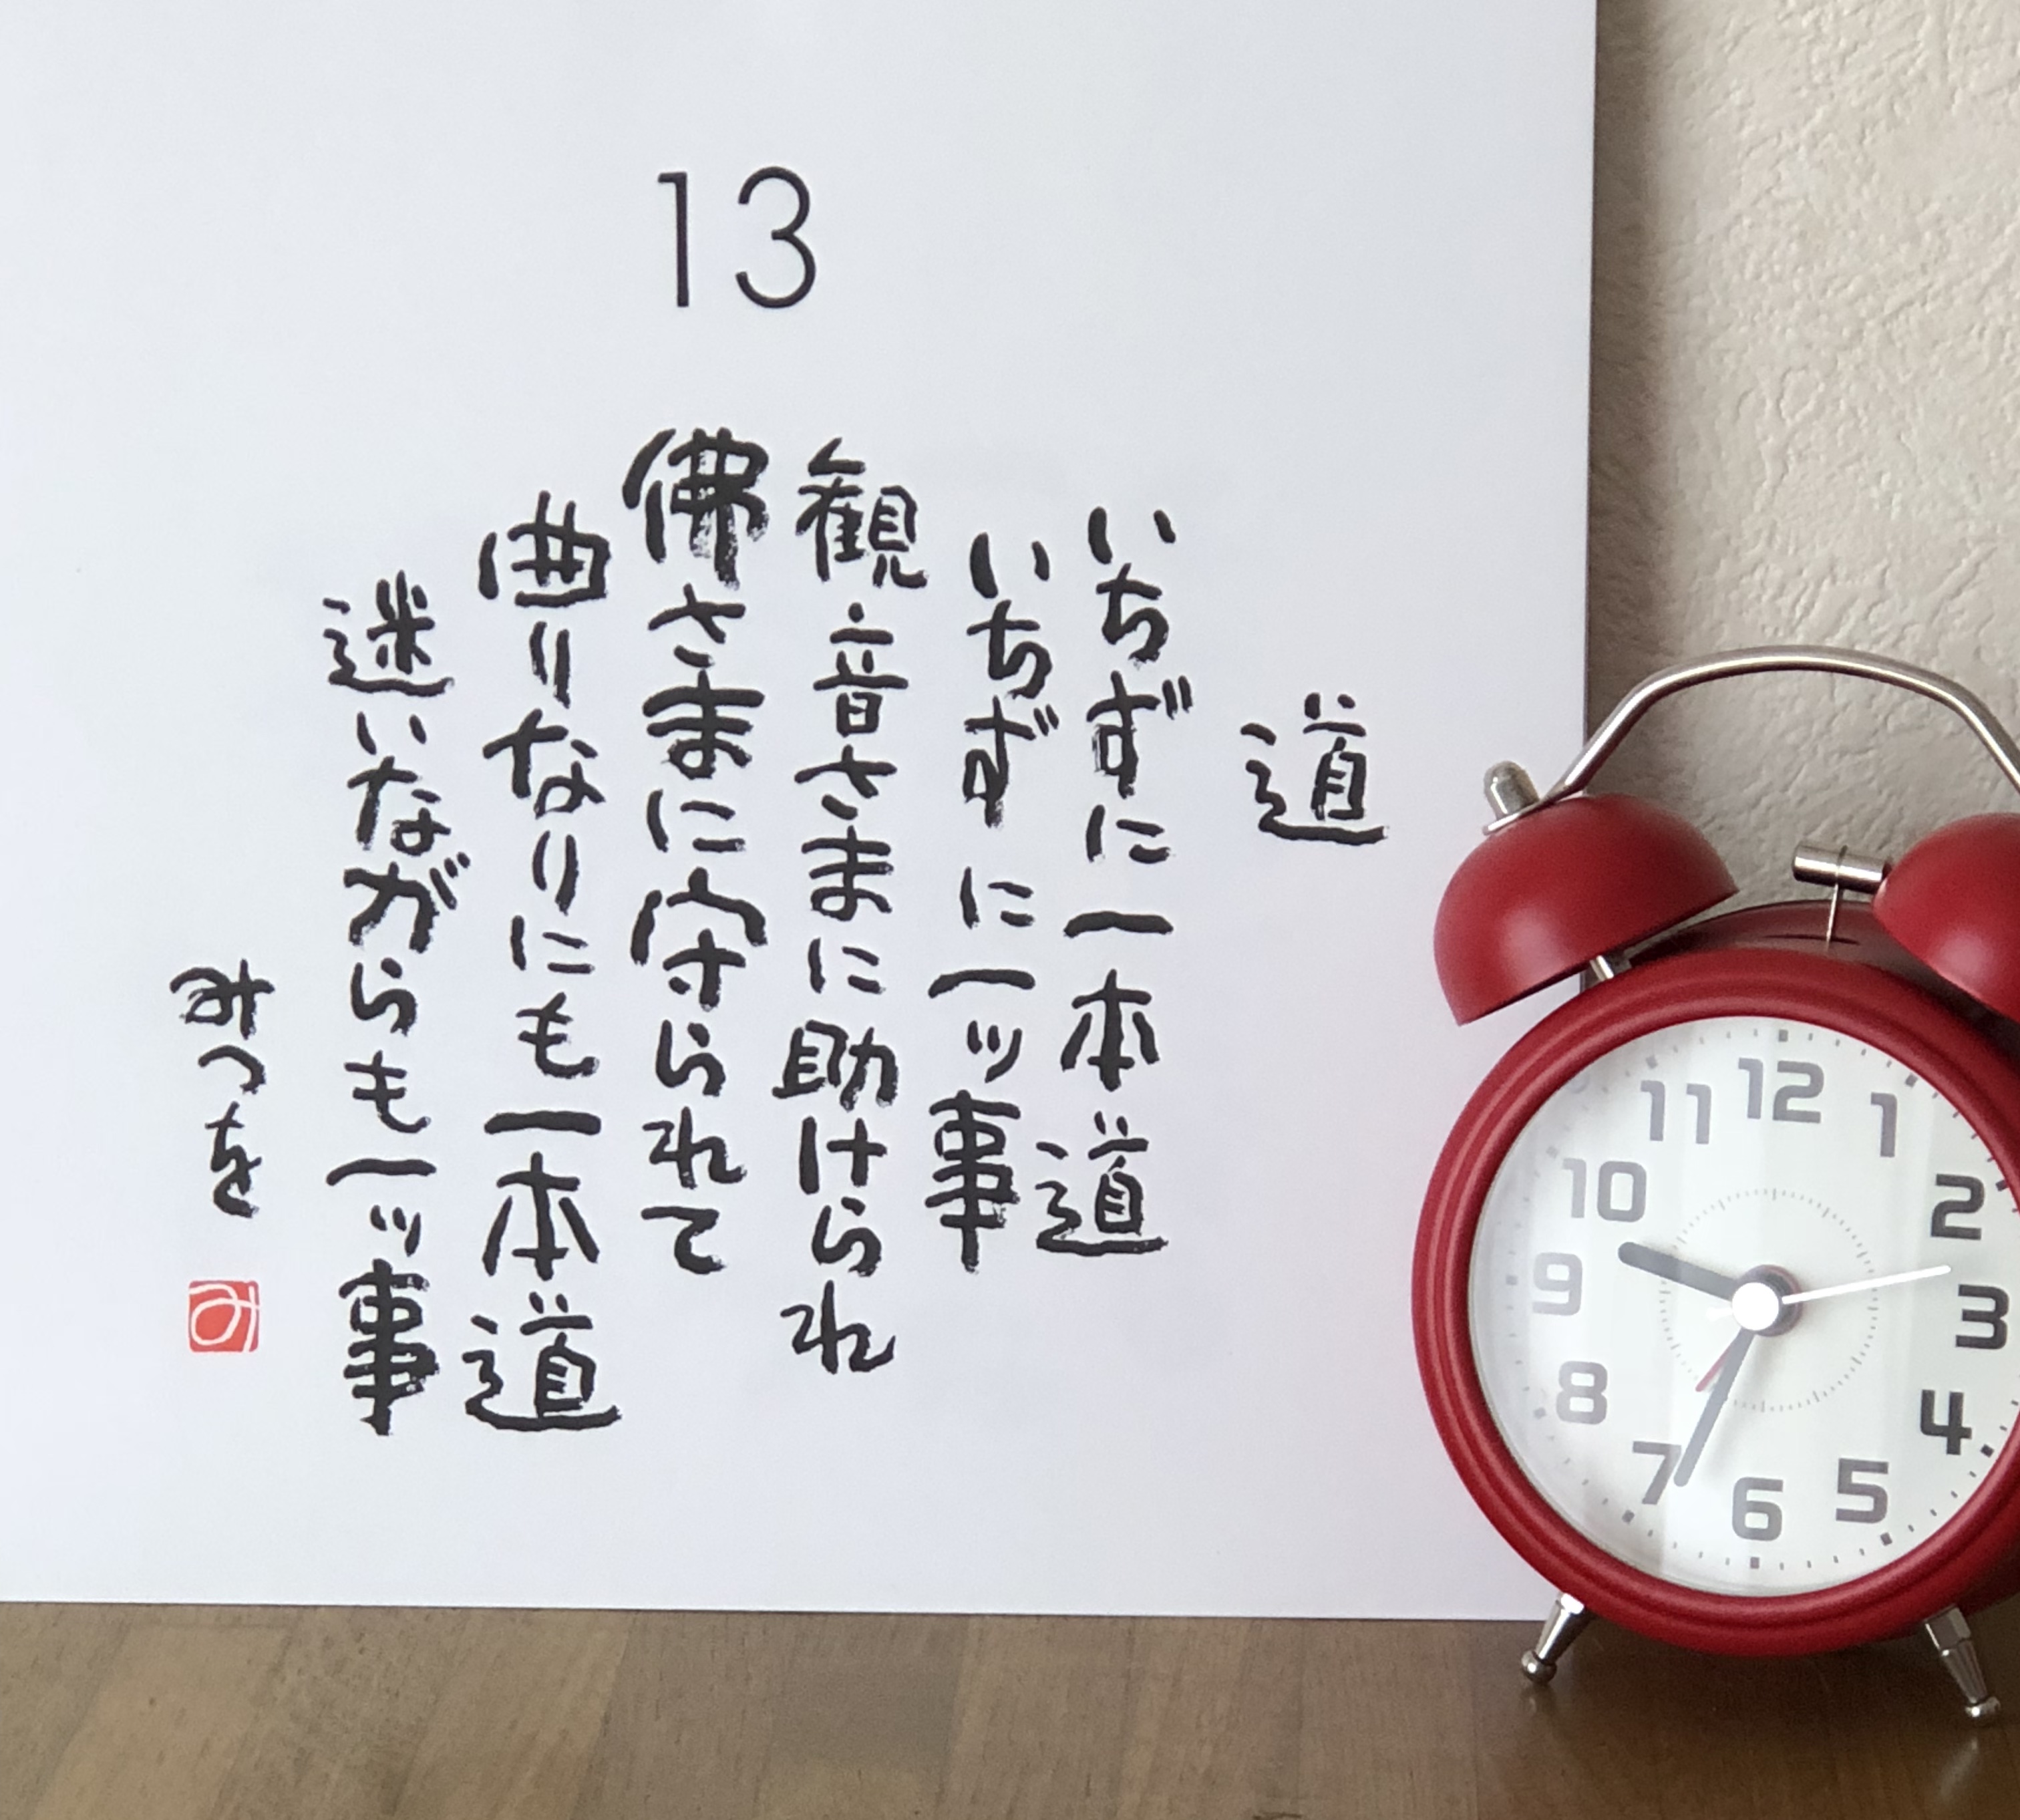 13
道
いちずに一本道
いちずに一ッ事
観音さまに助けられ
佛さまに守られて
曲りなりにも一本道
迷いながらも一ッ事
みつを
み
12
1
2
3
4
5
6
7
8
9
10
11